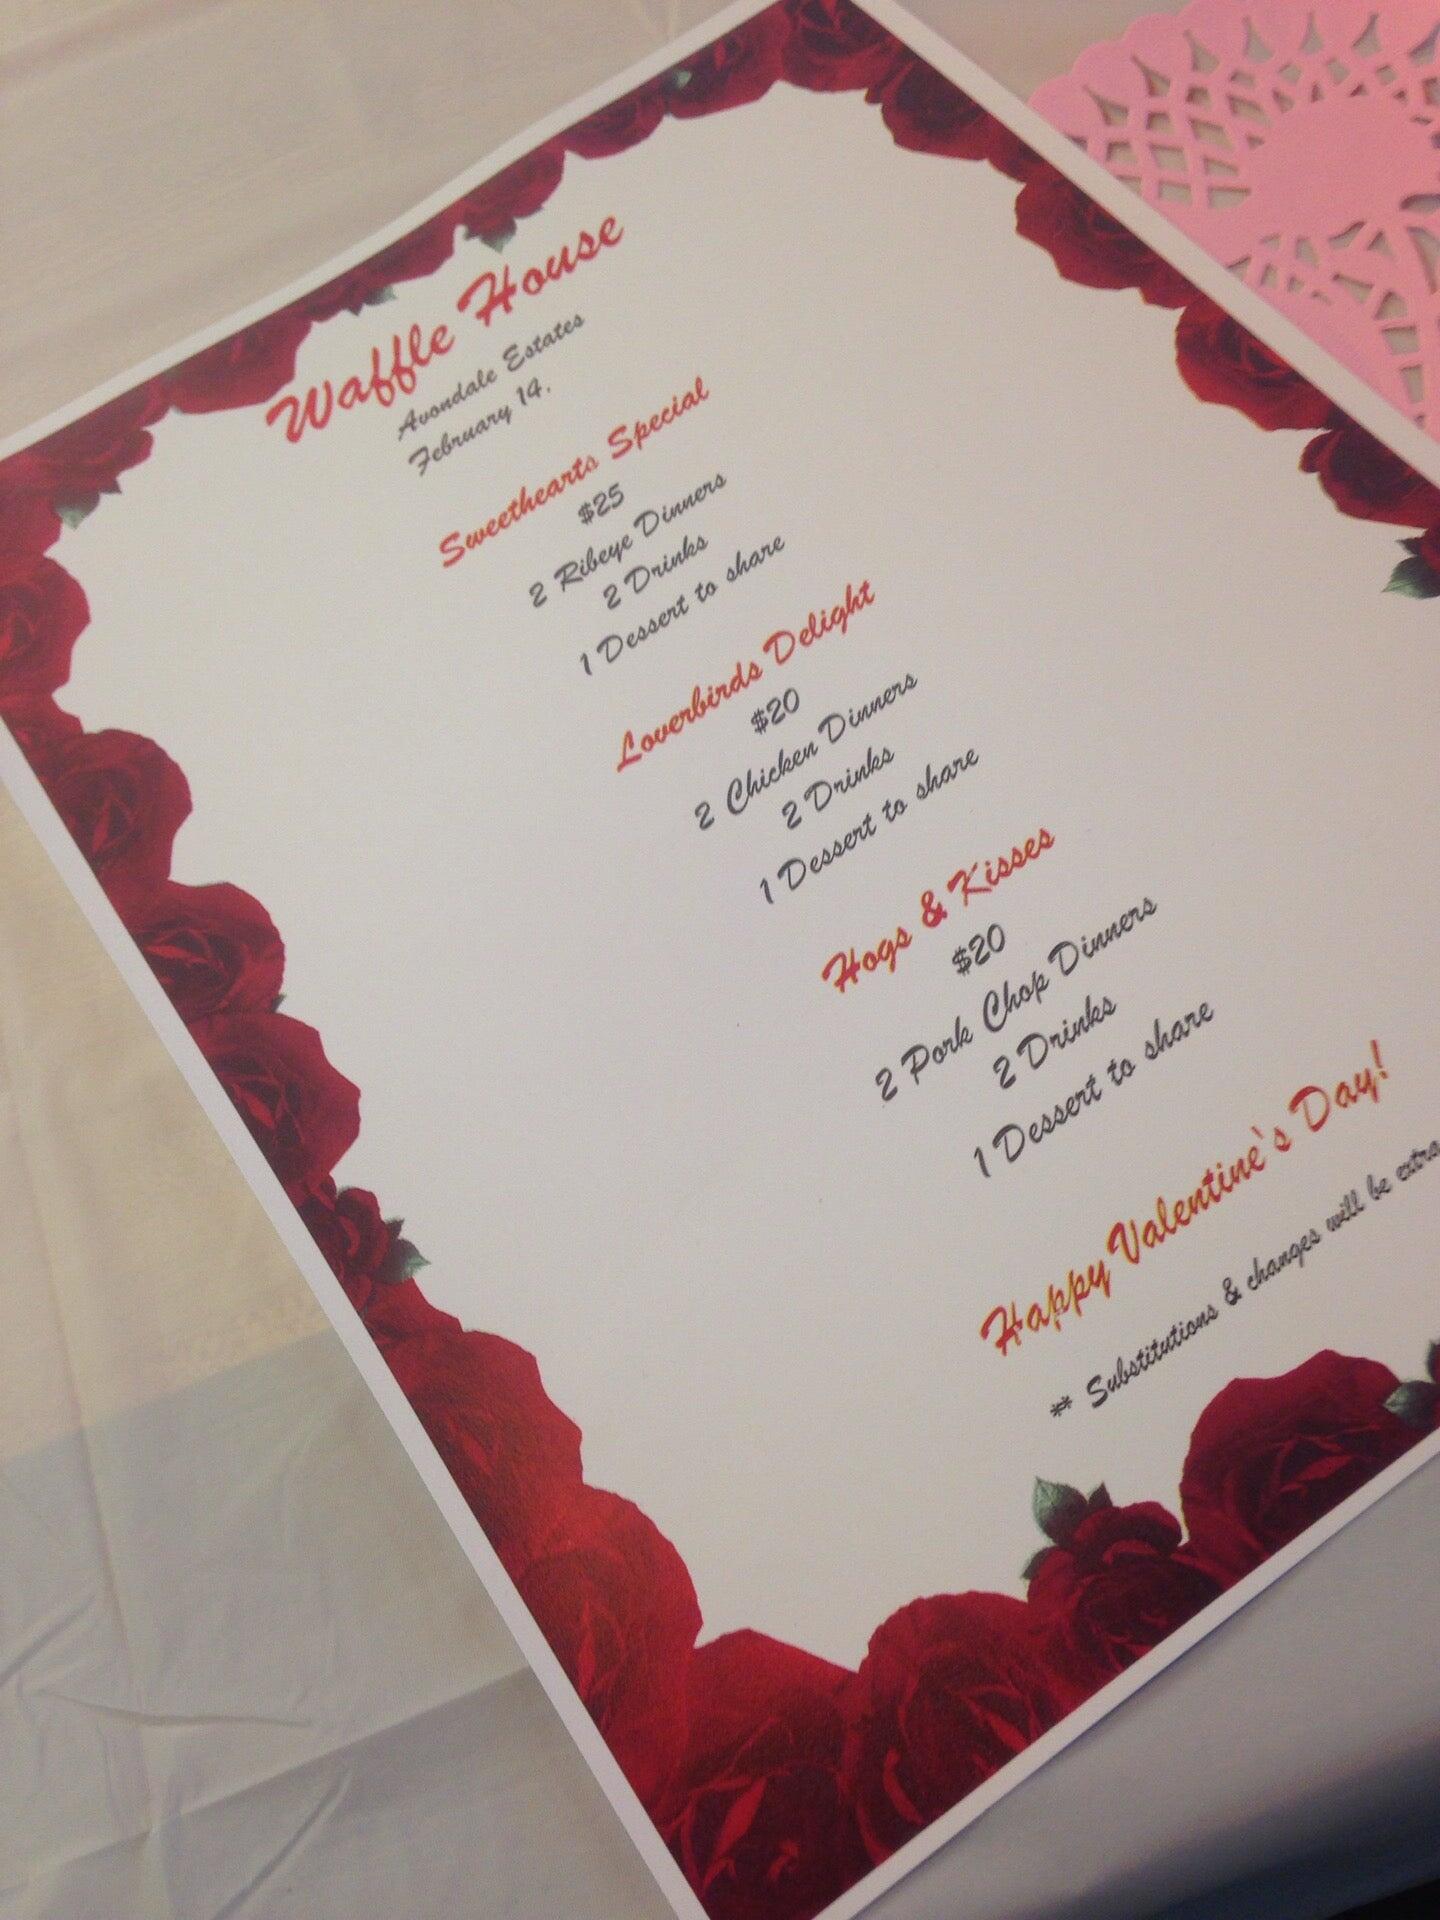 Waffle House
Avondale Estates
February 14.
Sweethearts Special
$25
2 Ribeye Dinners
2 Drinks
1 Dessert to share
Loverbirds Delight
$20
2 Chicken Dinners
2 Drinks
1 Dessert to share
Hogs & Kisses
$20
2 Pork Chop Dinners
2 Drinks
1 Dessert to share
Happy Valentine's Day!
** Substitutions & changes will be extra